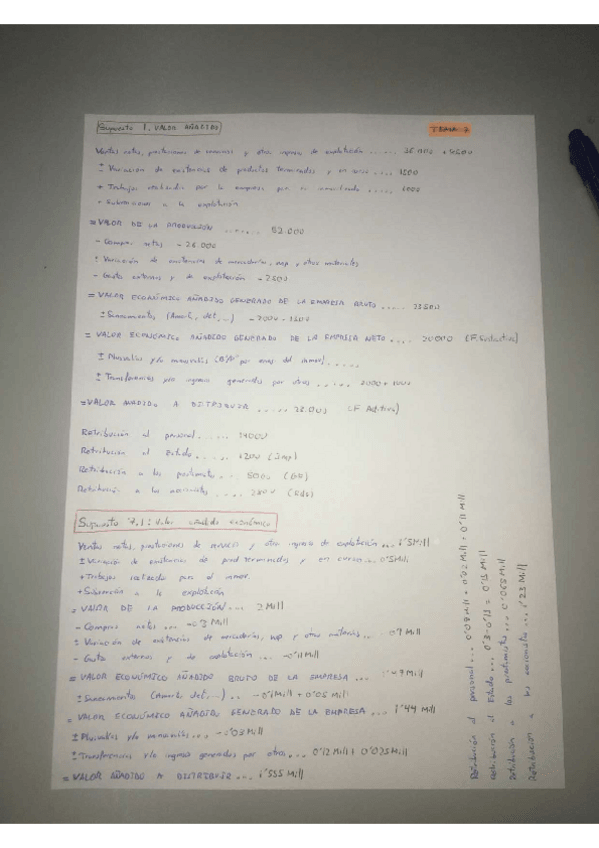 Supuesto 1. VALOR AÑADIDO
TEMA 7
Ventas netas, prestaciones de servicios y otros ingresos de explotación .....
± Variación de existencias de productos terminados y en curso ... 1500
+ Trabajos realizados por la empresa para su inmovilizado ..... 1000
+ Subvenciones a la explotación
= VALOR DE LA PRODUCCIÓN ...... 52.000
- Compras netas - 26.000
± Variación de existencias de mercaderías, mp y otros materiales
- Gastos externos y de explotación - 2500
= VALOR ECONÓMICO AÑADIDO GENERADO DE LA EMPRESA BRUTO .... 23.500
± Saneamientos (Amort, det,...)
= VALOR ECONÓMICO AÑADIDO GENERADO DE LA EMPRESA NETO .... 20000 (F. Sustractiva)
± Plusvalías y/o minusvalías
± Transferencias y/o ingresos generados por otros ..... 2000 + 1000
= VALOR AÑADIDO A DISTRIBUIR ..... 23.000 (F Aditiva)
Retribución al personal ..... 14000
Retribución al Estado ..... 1200 (Imp)
Retribución a los prestamistas ... 5000 (GF)
Retribución a los accionistas .... 2800
Supuesto 7.1: Valor añadido económico
Ventas netas, prestaciones de servicios y otros ingresos de explotación ... 1'5Mill
± Variación de existencias de prod terminados y en curso .. 0'5Mill
+ Trabajos realizado para el inmov.
+ Subvención a la explotación
= VALOR DE LA PRODUCCIÓN ... 2 Mill
- Compras netas ... -0'3 Mill
± Variación de existencias de mercaderías, mp y otros materias ..
- Gastos externos y de explotación ... -0'11 Mill
= VALOR ECONÓMICO AÑADIDO BRUTO DE LA EMPRESA ... 1'49 Mill
± Saneamientos (Amort, det,...) .. -0'1Mill + 0'05 Mill
= VALOR ECONÓMICO AÑADIDO GENERADO DE LA EMPRESA ... 1'44 Mill
± Plusvalías y/o minusvalías ... -0'03 Mill
± Transferencias y/o ingresos generados por otros ... 0'12 Mill + 0'025 Mill
= VALOR AÑADIDO A DISTRIBUIR ... 1'555 Mill
Retribución al personal ... 0'08 Mill + 0'02 Mill + 0'01 Mill
Retribución al Estado ... 0'3 - 0'15 = 0'15 Mill
Retribución a los prestamistas ... 0'065 Mill
Retribución a los accionistas ... 1'23 Mill